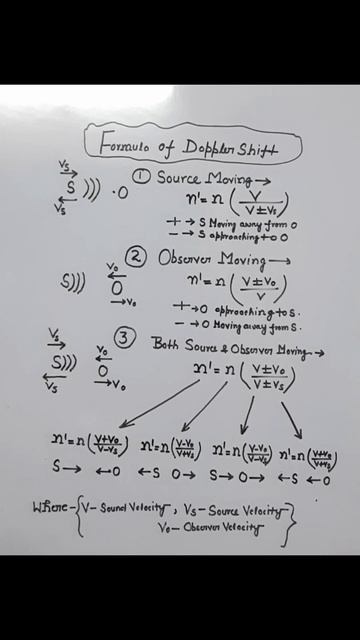 Formula of Doppler Shift
Vs
→
S))) . O
←
Vs
① Source Moving →
n' = n ( V / V ± Vs )
+ → S Moving away from O
− → S approaching to O
② Observer Moving →
S))) Vo ← O → Vo
n' = n ( V ± Vo / V )
+ → O approaching to S.
− → O Moving away from S.
③ Both Source & Observer Moving →
Vs → S))) ← Vs
Vo ← O → Vo
n' = n ( V ± Vo / V ± Vs )
n' = n ( V+Vo / V−Vs ) n' = n ( V−Vo / V+Vs ) n' = n ( V−Vo / V−Vs ) n' = n ( V+Vo / V+Vs )
S → ← O ← S O → S → O → ← S ← O
Where - { V - Sound Velocity , Vs - Source Velocity
Vo - Observer Velocity }